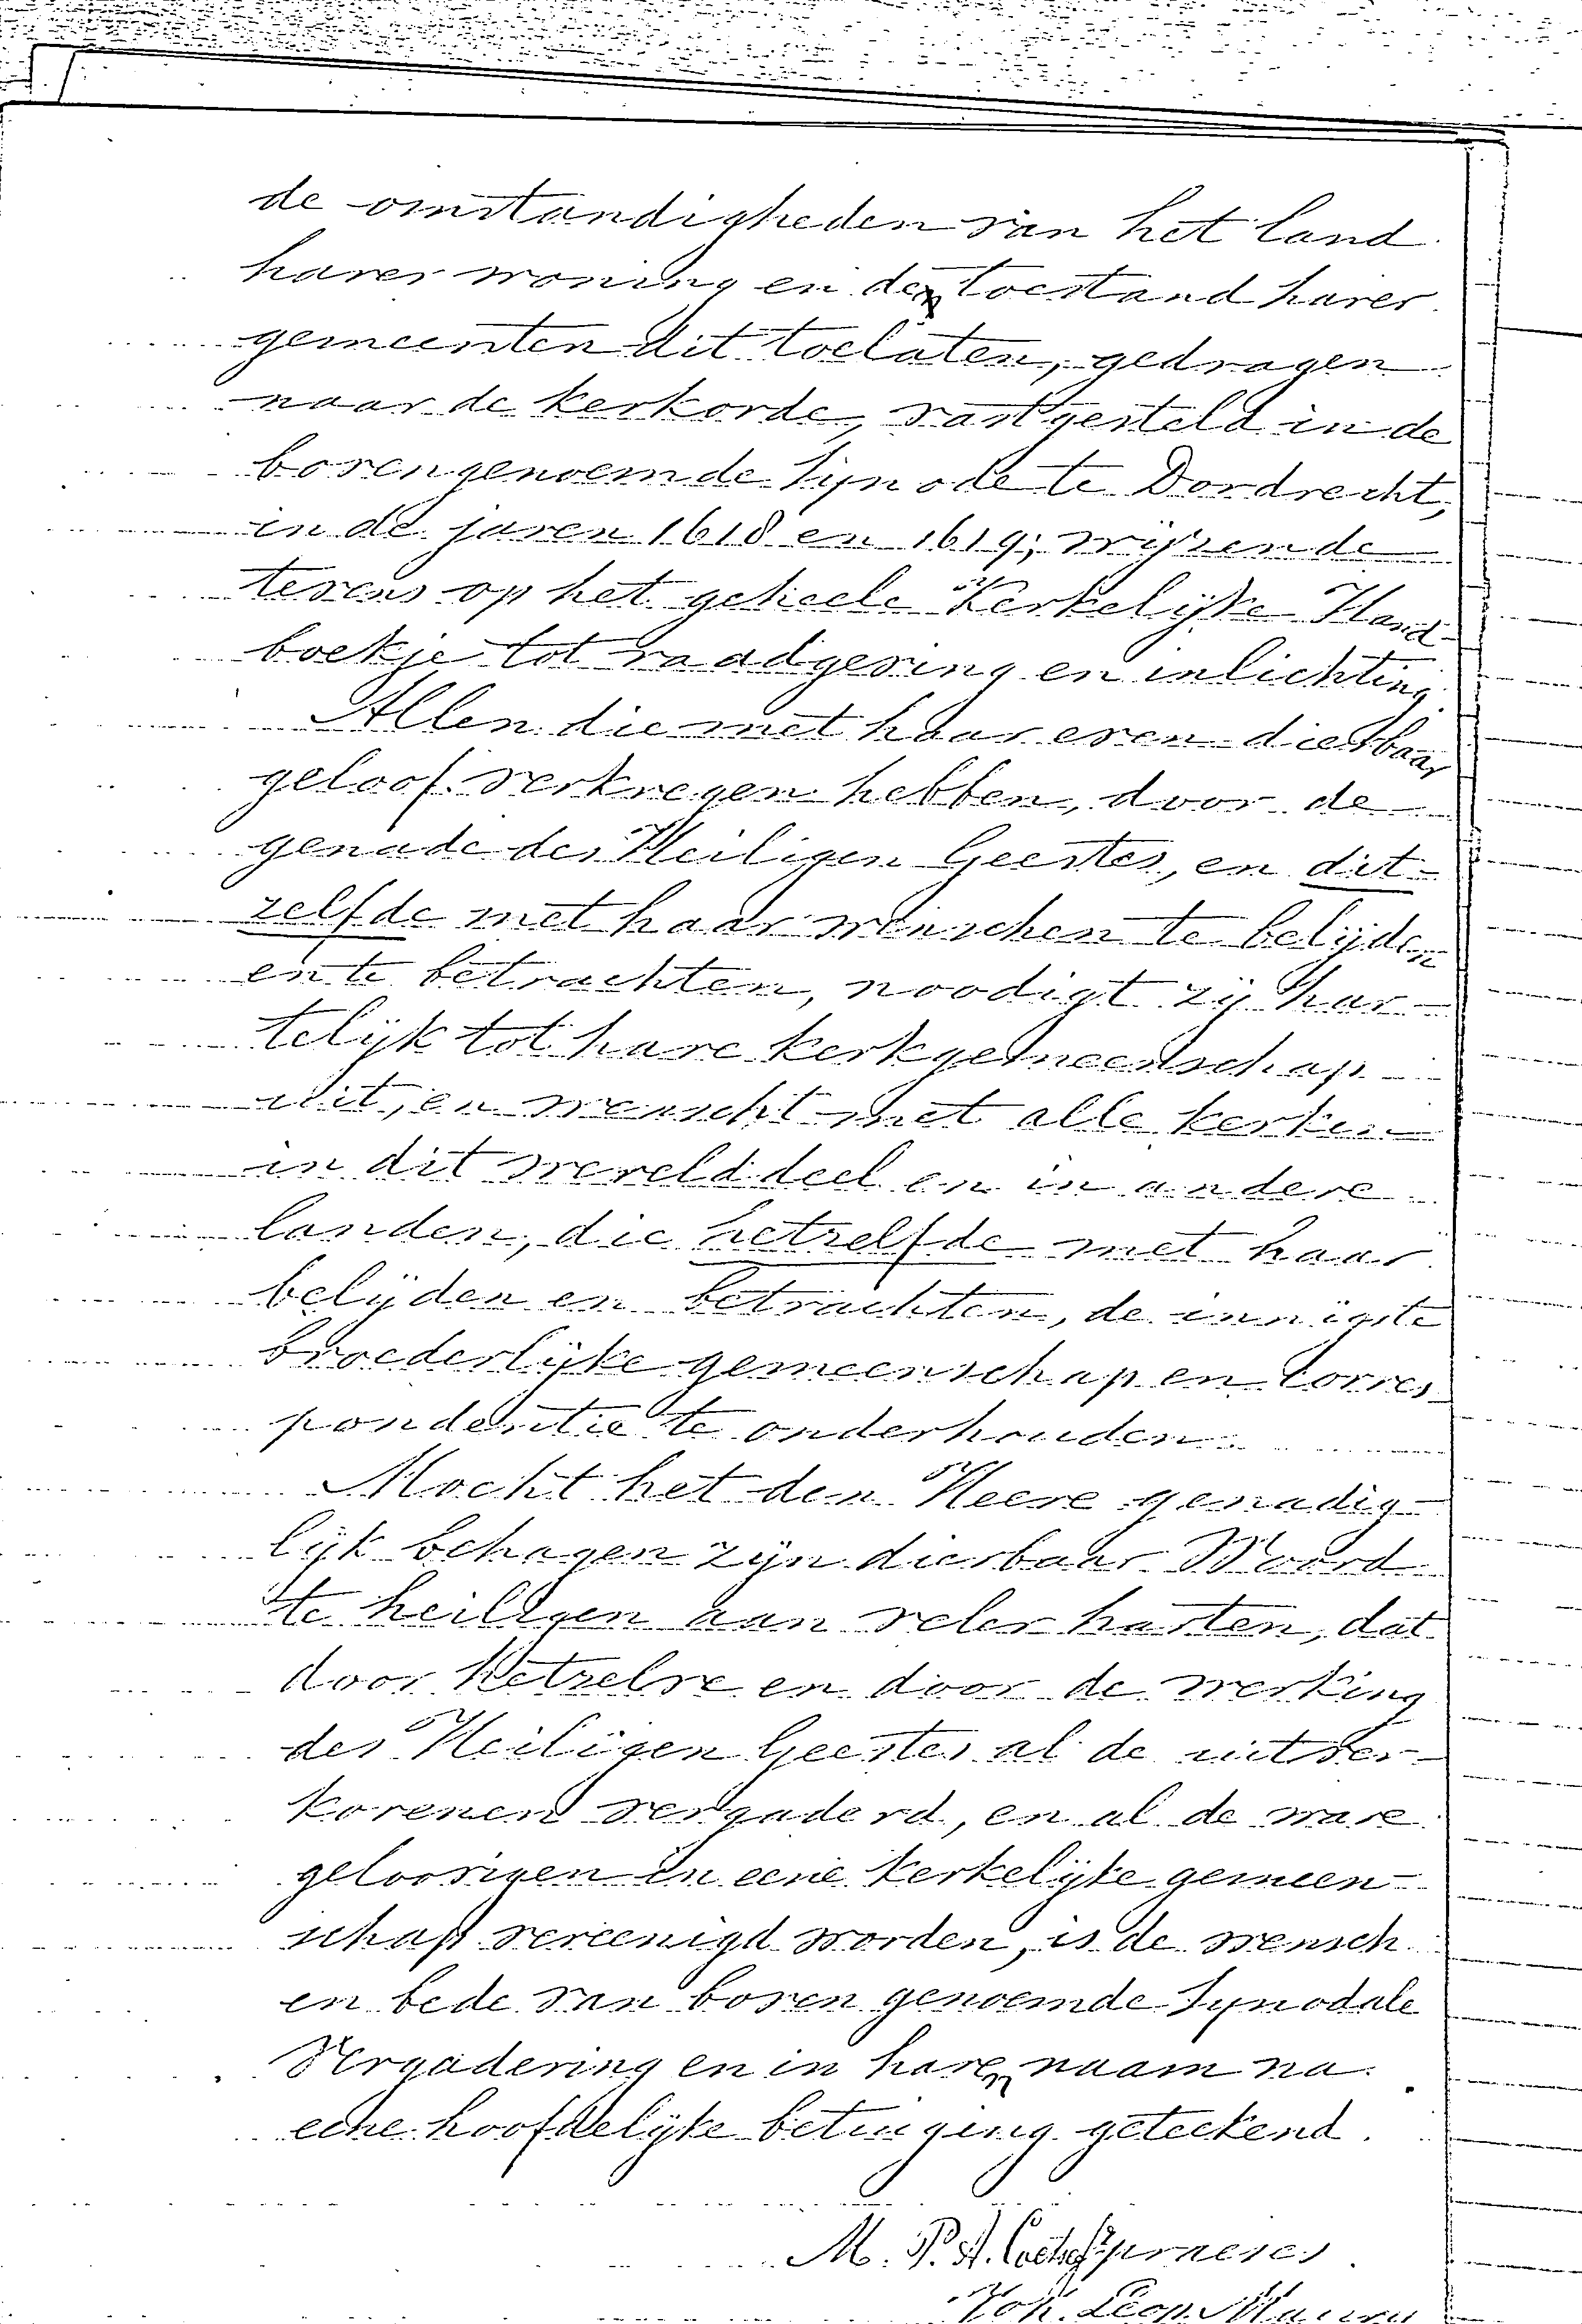 de omstandigheden van het land
harer woning en de toestand harer
gemeenten dit toelaten, gedragen
naar de kerkorde, vastgesteld in de
bovengenoemde Synode te Dordrecht,
in de jaren 1618 en 1619; wijzende
tevens op het geheele Kerkelijke Hand-
boekje tot raadgeving en inlichting.
Allen die met haar even dierbaar
geloof verkregen hebben, door de
genade des Heiligen Geestes, en dit-
zelfde met haar wenschen te belijden
en te betrachten, noodigt zij har-
telijk tot hare kerkgemeenschap
uit, en wenscht met alle kerken
in dit werelddeel en in andere
landen, die hetzelfde met haar
belijden en betrachten, de innigste
broederlijke gemeenschap en corres-
pondentie te onderhouden.
Mocht het den Heere genadig-
lijk behagen zijn dierbaar Woord
te heiligen aan veler harten, dat
door hetzelve en door de werking
des Heiligen Geestes al de uitver-
korenen vergaderd, en al de ware
geloovigen in eene kerkelijke gemeen-
schap vereenigd worden, is de wensch
en bede van boven genoemde Synodale
Vergadering en in hare naam na
eene hoofdelijke betuiging geteekend.
M. P. A. Coetsee
Joh. Leop.